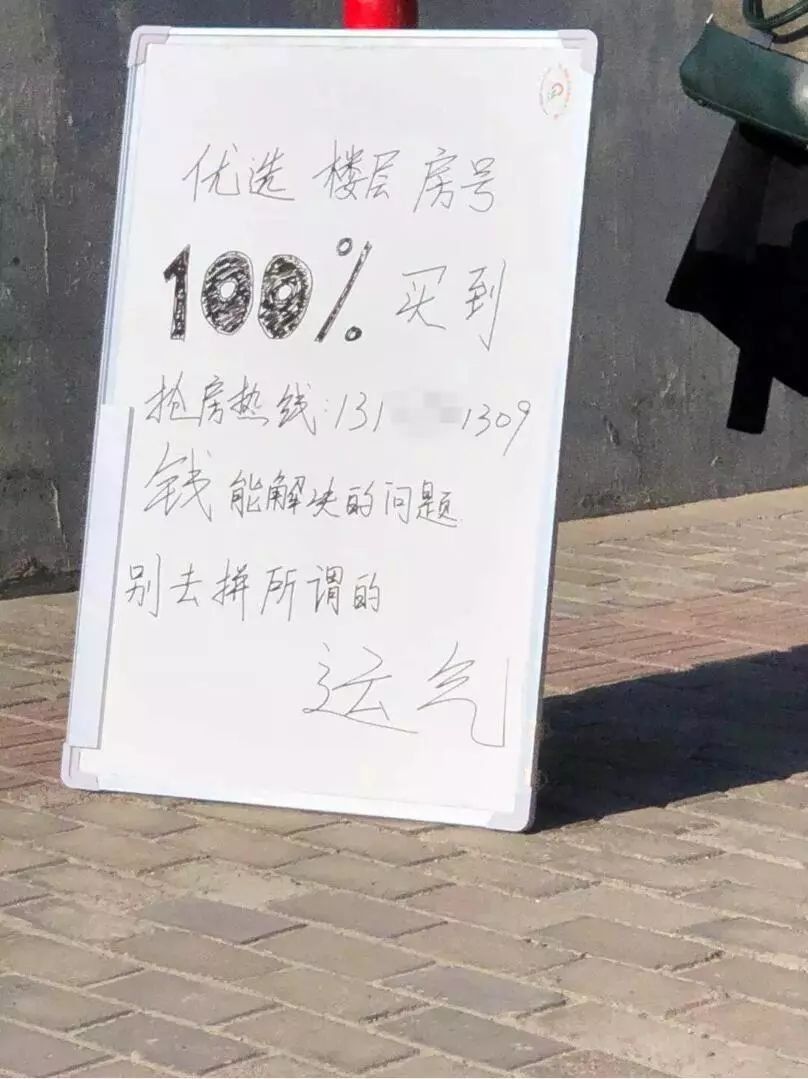 优选 楼层 房号
100% 买到
抢房热线:131 1309
钱能解决的问题
别去拼所谓的
运气